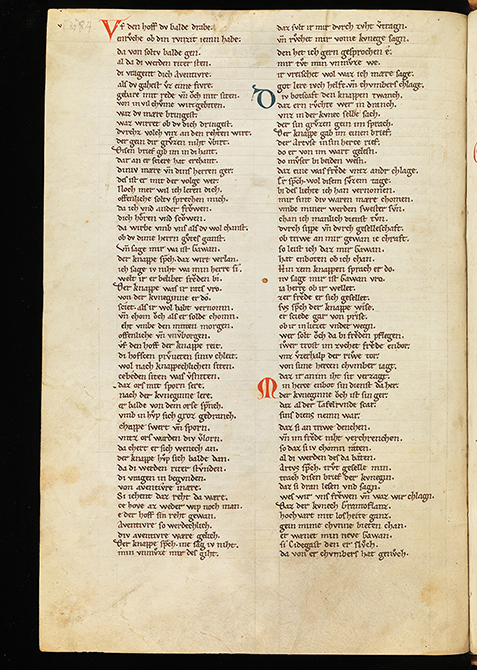 Vf den hoff dv balde drabe.
enrvche ob din rvnzit iemn habe.
da von soltv balde gen.
al da di werden riter sten.
di vragent dich aventivre.
als dv gahest vz eime fivre.
gebare mit rede vn̄ och mit siten.
von in vil chvme wirt gebiten.
waz dv mare bringest.
waz wirret ob dv dich dringest.
dvrhz volch vnz an den rehten wirt.
der gein dir grvzen niht vbirt.
Disen brief gib im in di hant.
dar an er sciere hat erchant.
diniv mare vn̄ dins herren ger.
des ist er mit der volge wer.
Noch mer wil ich leren dich.
offenliche soltv sprechen mich.
da ich vnd ander frowen.
dich horen vnd scowen.
da wirbe vmb vns als dv wol chanst.
ob dv dime herren gvtes ganst.
Vn̄ sage mir wa ist Gawan.
der knappe sp̄ch. daz wirt verlan.
ich sage iv niht wa min herre si.
welt ir er belibet frōden bi.
Der knappe was ir rates vro.
von der kvneginne er do.
sciet als ir wol habt vernomn.
vn̄ chom och als er solde chomn.
Ehr vmbe den mitten morgen.
offenliche vn̄ vnvborgen.
vf den hoff der knappe reit.
di hoffscen prvueten siniv chleit.
wol nach knappechlichen siten.
ze beden siten was vsniten.
daz ors mit sporn sere.
nach der kvneginne lere.
er balde von dem orse sprach.
vmb in hvp sich groz gedranch.
chappe swert vn̄ sporn.
vntz ors wurden div vlorn.
da chert er sich wenech an.
der knappe hvp sich balde dan.
da di werden riter stvnden.
di vragen in begvnden.
von aventivre mare.
Si iehent daz reht da ware.
ze hove az weder wip noch man.
e der hoff sin reht gewan.
Aventivre so werdechlich.
div aventivre ware gelich.
Der knappe sp̄ch. ine sag iv niht.
min vnmvze mir des giht.
daz svlt ir mir dvrch zvht vtragn.
vn̄ rvchet mir vome kvnege sagn.
den het ich gern gesprochen e.
mir tvt min vnmvze we.
ir vreischet wol waz ich mare sage.
got lere ivch helfe vn̄ chvmbers chlage.
Div botscaft den knappen twanch.
daz ern rvchte wer in dranch.
vnz in der kvnec selbe sach.
der sin grvzen gein im sprach.
Der knappe gab im einen brief.
der Artvse insin herze rief.
do er von im wart gelesn.
do mvser bi beiden wesn.
daz eine was frōde vntz ander chlage.
Er sp̄ch. wol disem svzen tage.
bi des liehte ich han vernomen.
mir sint div waren mare chomen.
vmbe miner werden swester svn.
chan ich manlich dienst tvn.
dvrch sippe vn̄ dvrch geselleschaft.
ob triwe an mir gewan ie chraft.
so leist ich daz mir Gawan.
hat enboten ob ich chan.
Hin zem knappen sprach er do.
nv sage mir ist Gawan vro.
ia herre ob ir wellet.
zer frōde er sich gesellet.
svs sp̄ch der knappe wise.
er sciede gar von prise.
ob ir in liezet vnder wegn.
wer solt och da bi frōden pflegen.
iwer trost im zvchet frōde enbor.
vnz vzerhalp der riwe tor.
von sime herzen chvmber iagt.
daz ir an im iht sit verzagt.
Min herre enbot sin dienst da her.
der kvneginne och ist sin ger.
daz al der Tafelrvnde scar.
sins diens neme war.
daz si an triwe denchen.
vn̄ im frōde niht verchrenchen.
so daz si iv chomn raten.
al di werden des da baten.
Artvs sp̄ch. trvt geselle min.
trach disen brief der kvnegin.
daz si dran lesen vnd sagn.
wes wir vns frewen vn̄ waz wir chlagn.
Daz der kvnech Gramoflanz.
hochvart mit losheite ganz.
gein mime chvnne bieten chan.
er wænet min neve Gawan.
si Cidegast den er slvch.
da von er chvmbers hat genvch.